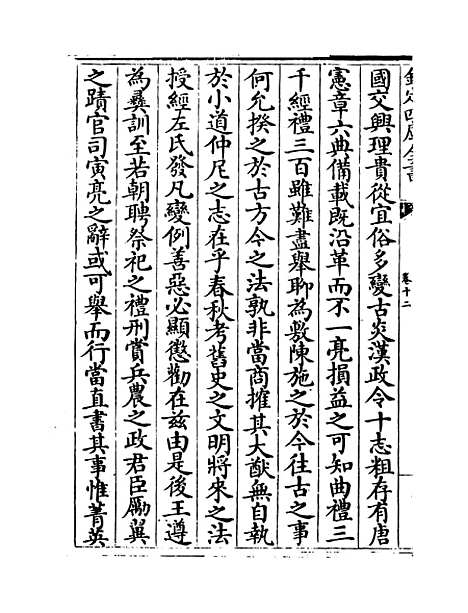 欽定四庫全書
卷十二
國交興理貴從宜俗多變古炎漢政令十志粗存有唐
憲章六典備載既沿革而不一亮損益之可知曲禮三
千經禮三百雖難盡舉聊為敷陳施之於今往古之事
何允揆之於古方今之法孰非當商搉其大猷無自執
於小道仲尼之志在乎春秋考舊史之文明將來之法
授經左氏發凡變例善惡必顯懲勸在兹由是後王遵
為彞訓至若朝聘祭祀之禮刑賞兵農之政君臣勵翼
之蹟官司寅亮之辭或可舉而行當直書其事惟菁英